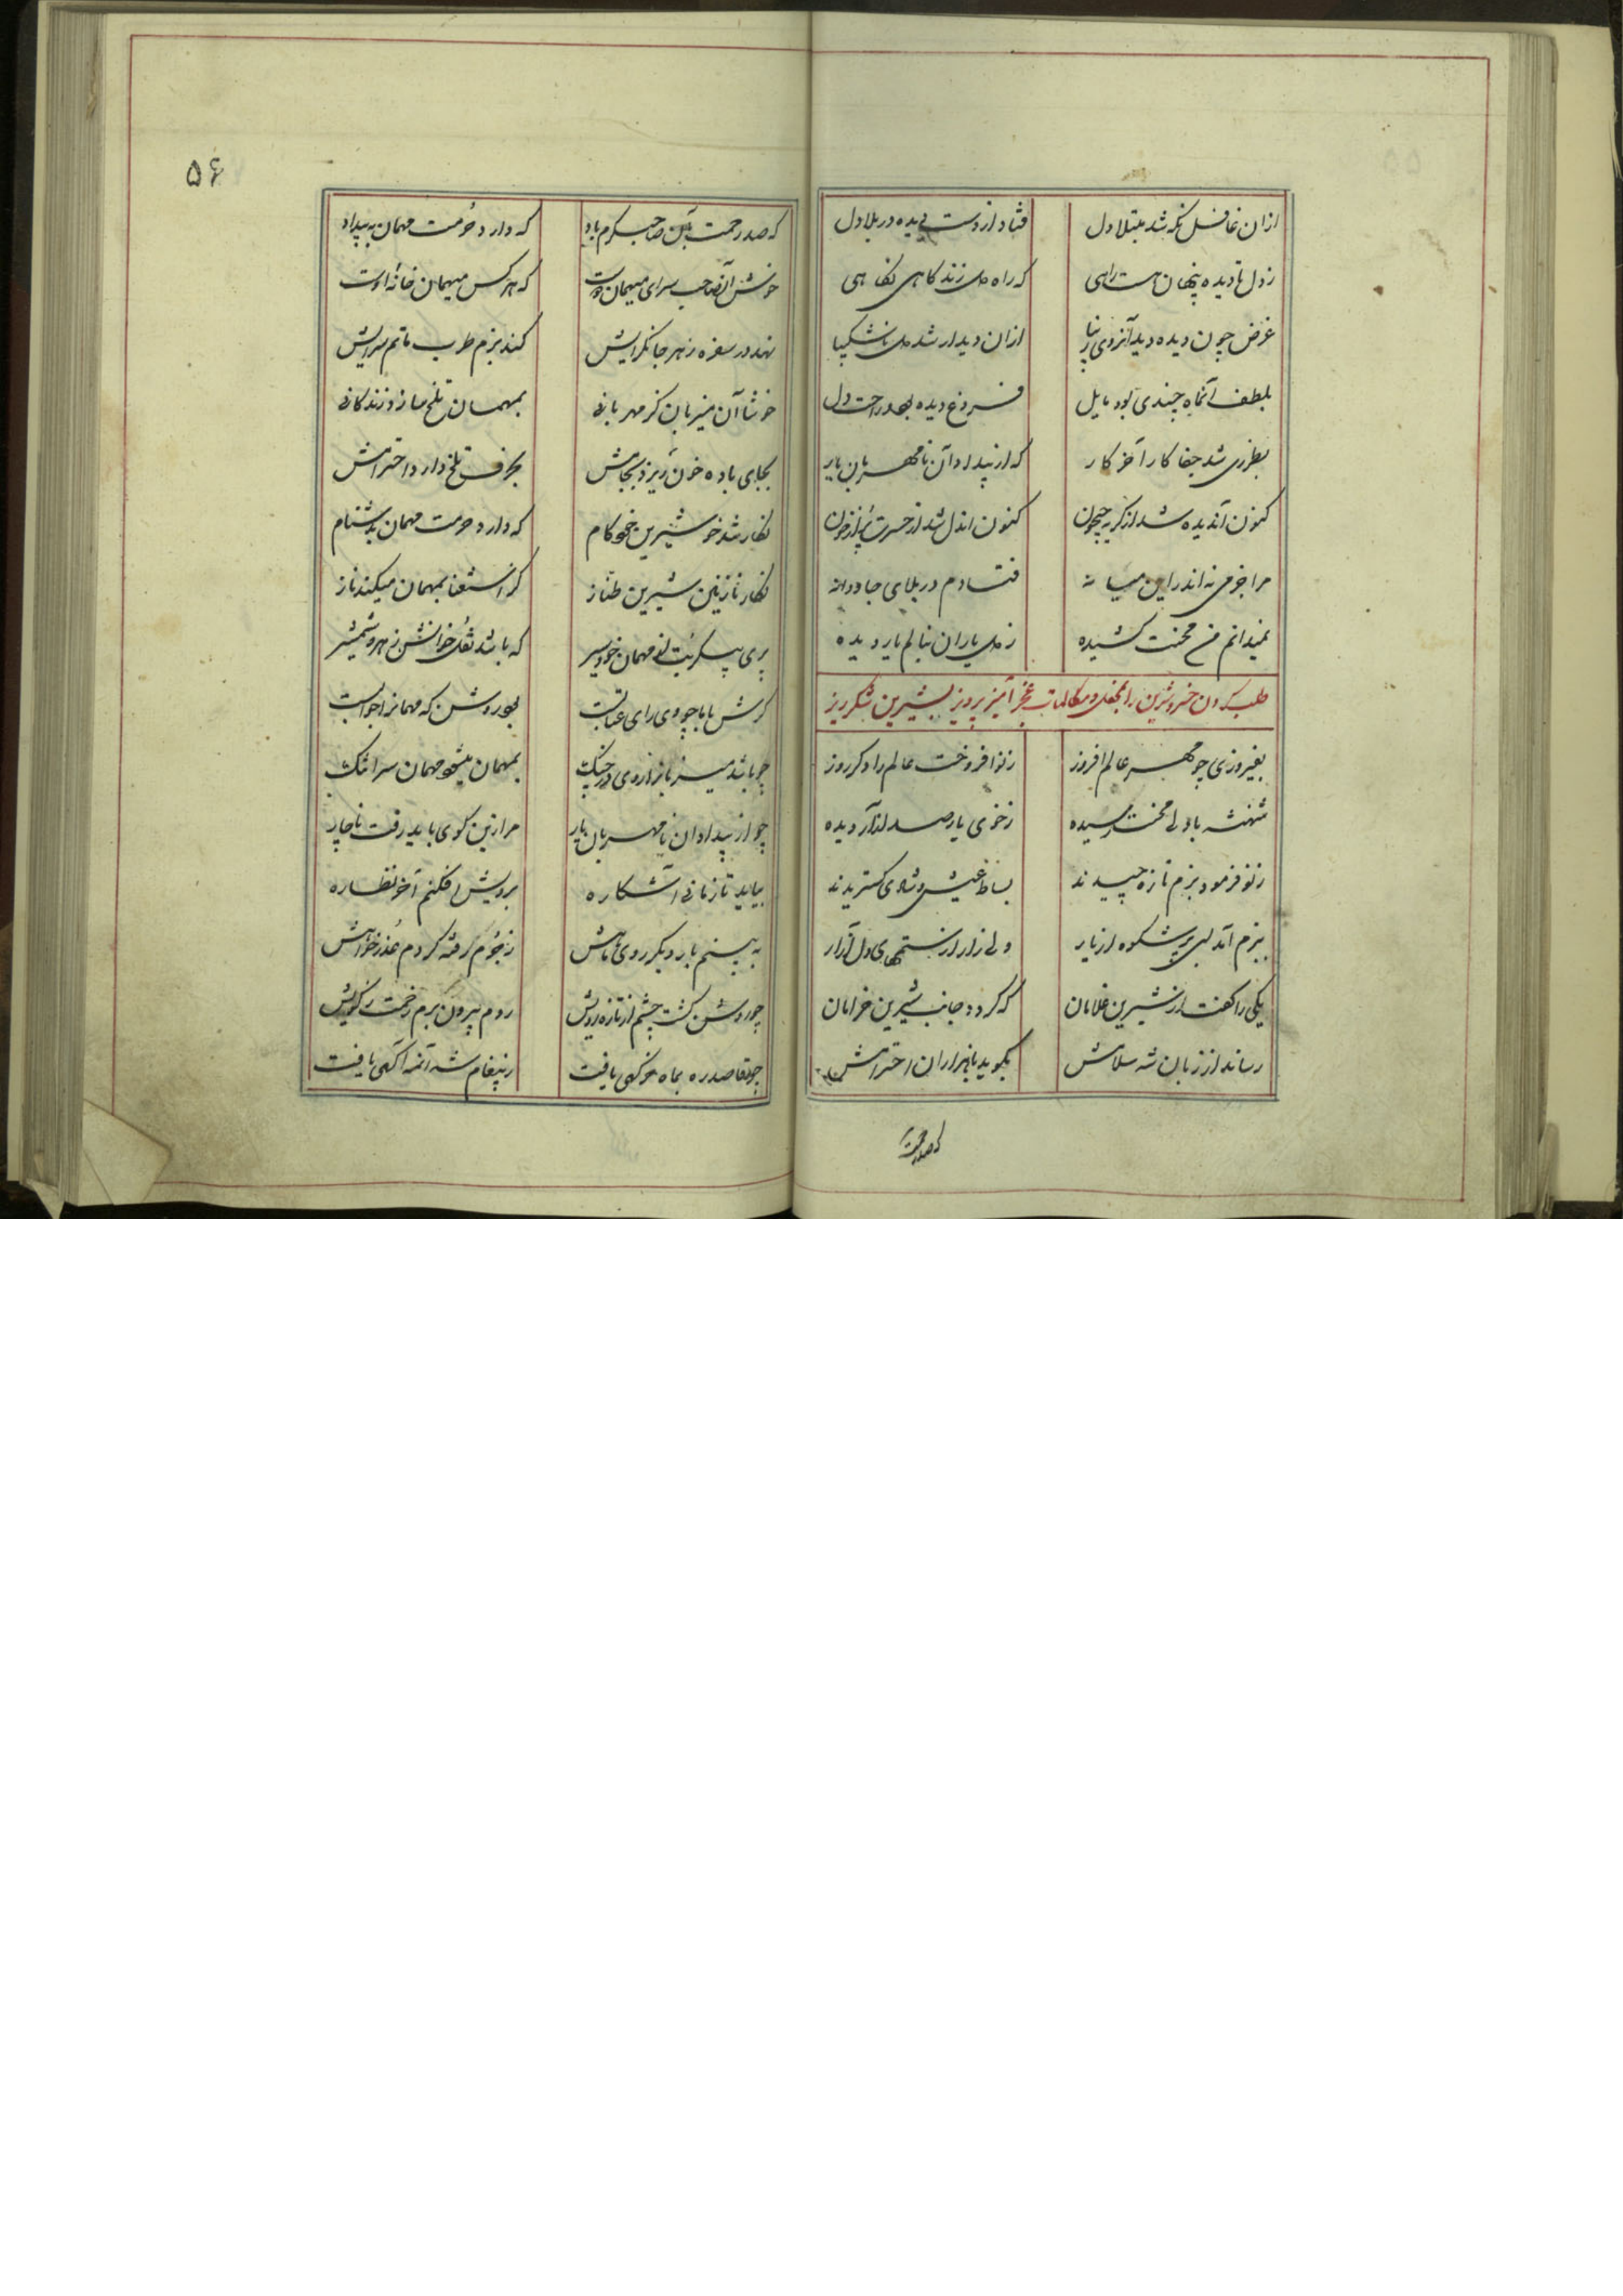 ازان غافل نگه شد مبتلا دل فتاد از دست دیده در بلا دل
ز دل تا دیده پنهان هست راهی که راه دل زند گاهی نگاهی
غرض چون دیده دید آنروی زیبا ازان دیدار شد دل ناشکیبا
بلطف آنماه چندی بود مایل فروغ دیده بود و راحت دل
بطرزی شد جفا کار آخر کار که از بیداد آن نامهربان یار
کنون آندیده شد از گریه جیحون کنون اندل شد از حسرت پر از خون
مرا جرمی نه اندر این میانه فتادم در بلای جاودانه
نمیدانم من محنت کشیده ز دل یاران بنالم یا ز دیده
طلب کردن خسرو شیرین را بمحفل و مکالمات عجز آمیز پرویز بشیرین شکرریز
بفیروزی چو مهر عالم افروز ز نو افروخت عالم را دگر روز
شهنشه با دلی محنت رسیده ز خوی یار صد آزار دیده
ز نو فرمود بزم تازه چیدند بساط عیش و شادی گستریدند
ببزم آمد لبی پر شکوه از یار دلی زار از ستمهای دل آزار
یکی را گفت از شیرین غلامان که گردد جانب شیرین خرامان
رساند از زبان شه سلامش بگوید با هزاران احترامش
که صد رحمت
۵۶
که صد رحمت بآن صاحب کرم باد که دارد حرمت مهمان به بیداد
خوش آنصاحب سرای میهمان دوست که هر کس میهمان خانه اوست
نهد در سفره زهر جانگزایش کند بزم طرب ماتم سرایش
خوشا آن میزبان کز مهربانی بمهمان تلخ سازد زندگانی
بجای باده خون ریزد بجامش بحرف تلخ دارد احترامش
نگار شد خو شیرین خودکام که دارد حرمت مهمان بدشنام
نگار نازنین شیرین طناز کز استغنا بمهمان میکند ناز
پری پیکر بت مهمان خود سیر که باشد نقل خوانش زهر و شمشیر
گرش با ما چو وی رای عتابست بود روشن که مهمانرا جوابست
چو باشد میزبانرا روی در جنگ بمهمان میشود مهمان سرا تنگ
چو از بیداد ان نامهربان یار مرا زین کوی باید رفت ناچار
بیاید تا زمانی آشکاره برویش افکنم آخر نظاره
به بینم بار دیگر روی ماهش ز جرم رفته گردم عذر خواهش
چو روشن گشت چشم از تازه رویش روم بیرون برم زحمت ز کویش
چو قاصد ره بماه خرگهی یافت ز پیغام شه آنمه آگهی یافت